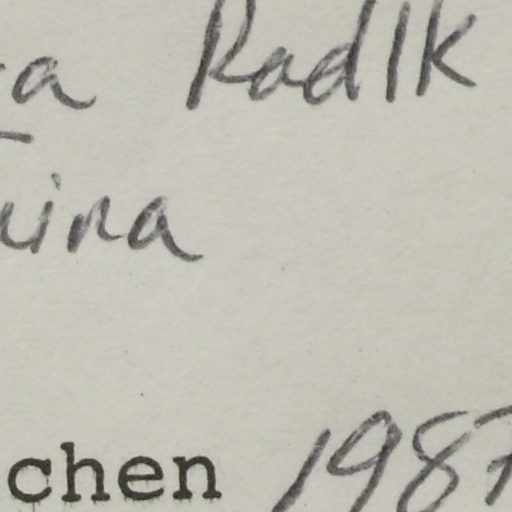 a Radlk
uina
chen 1987